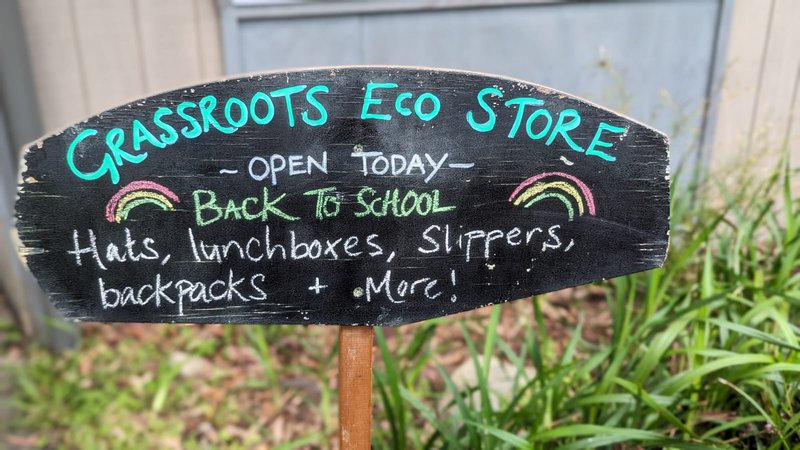 GRASSROOTS ECO STORE
~OPEN TODAY~
BACK TO SCHOOL
Hats, lunchboxes, Slippers,
backpacks + More!